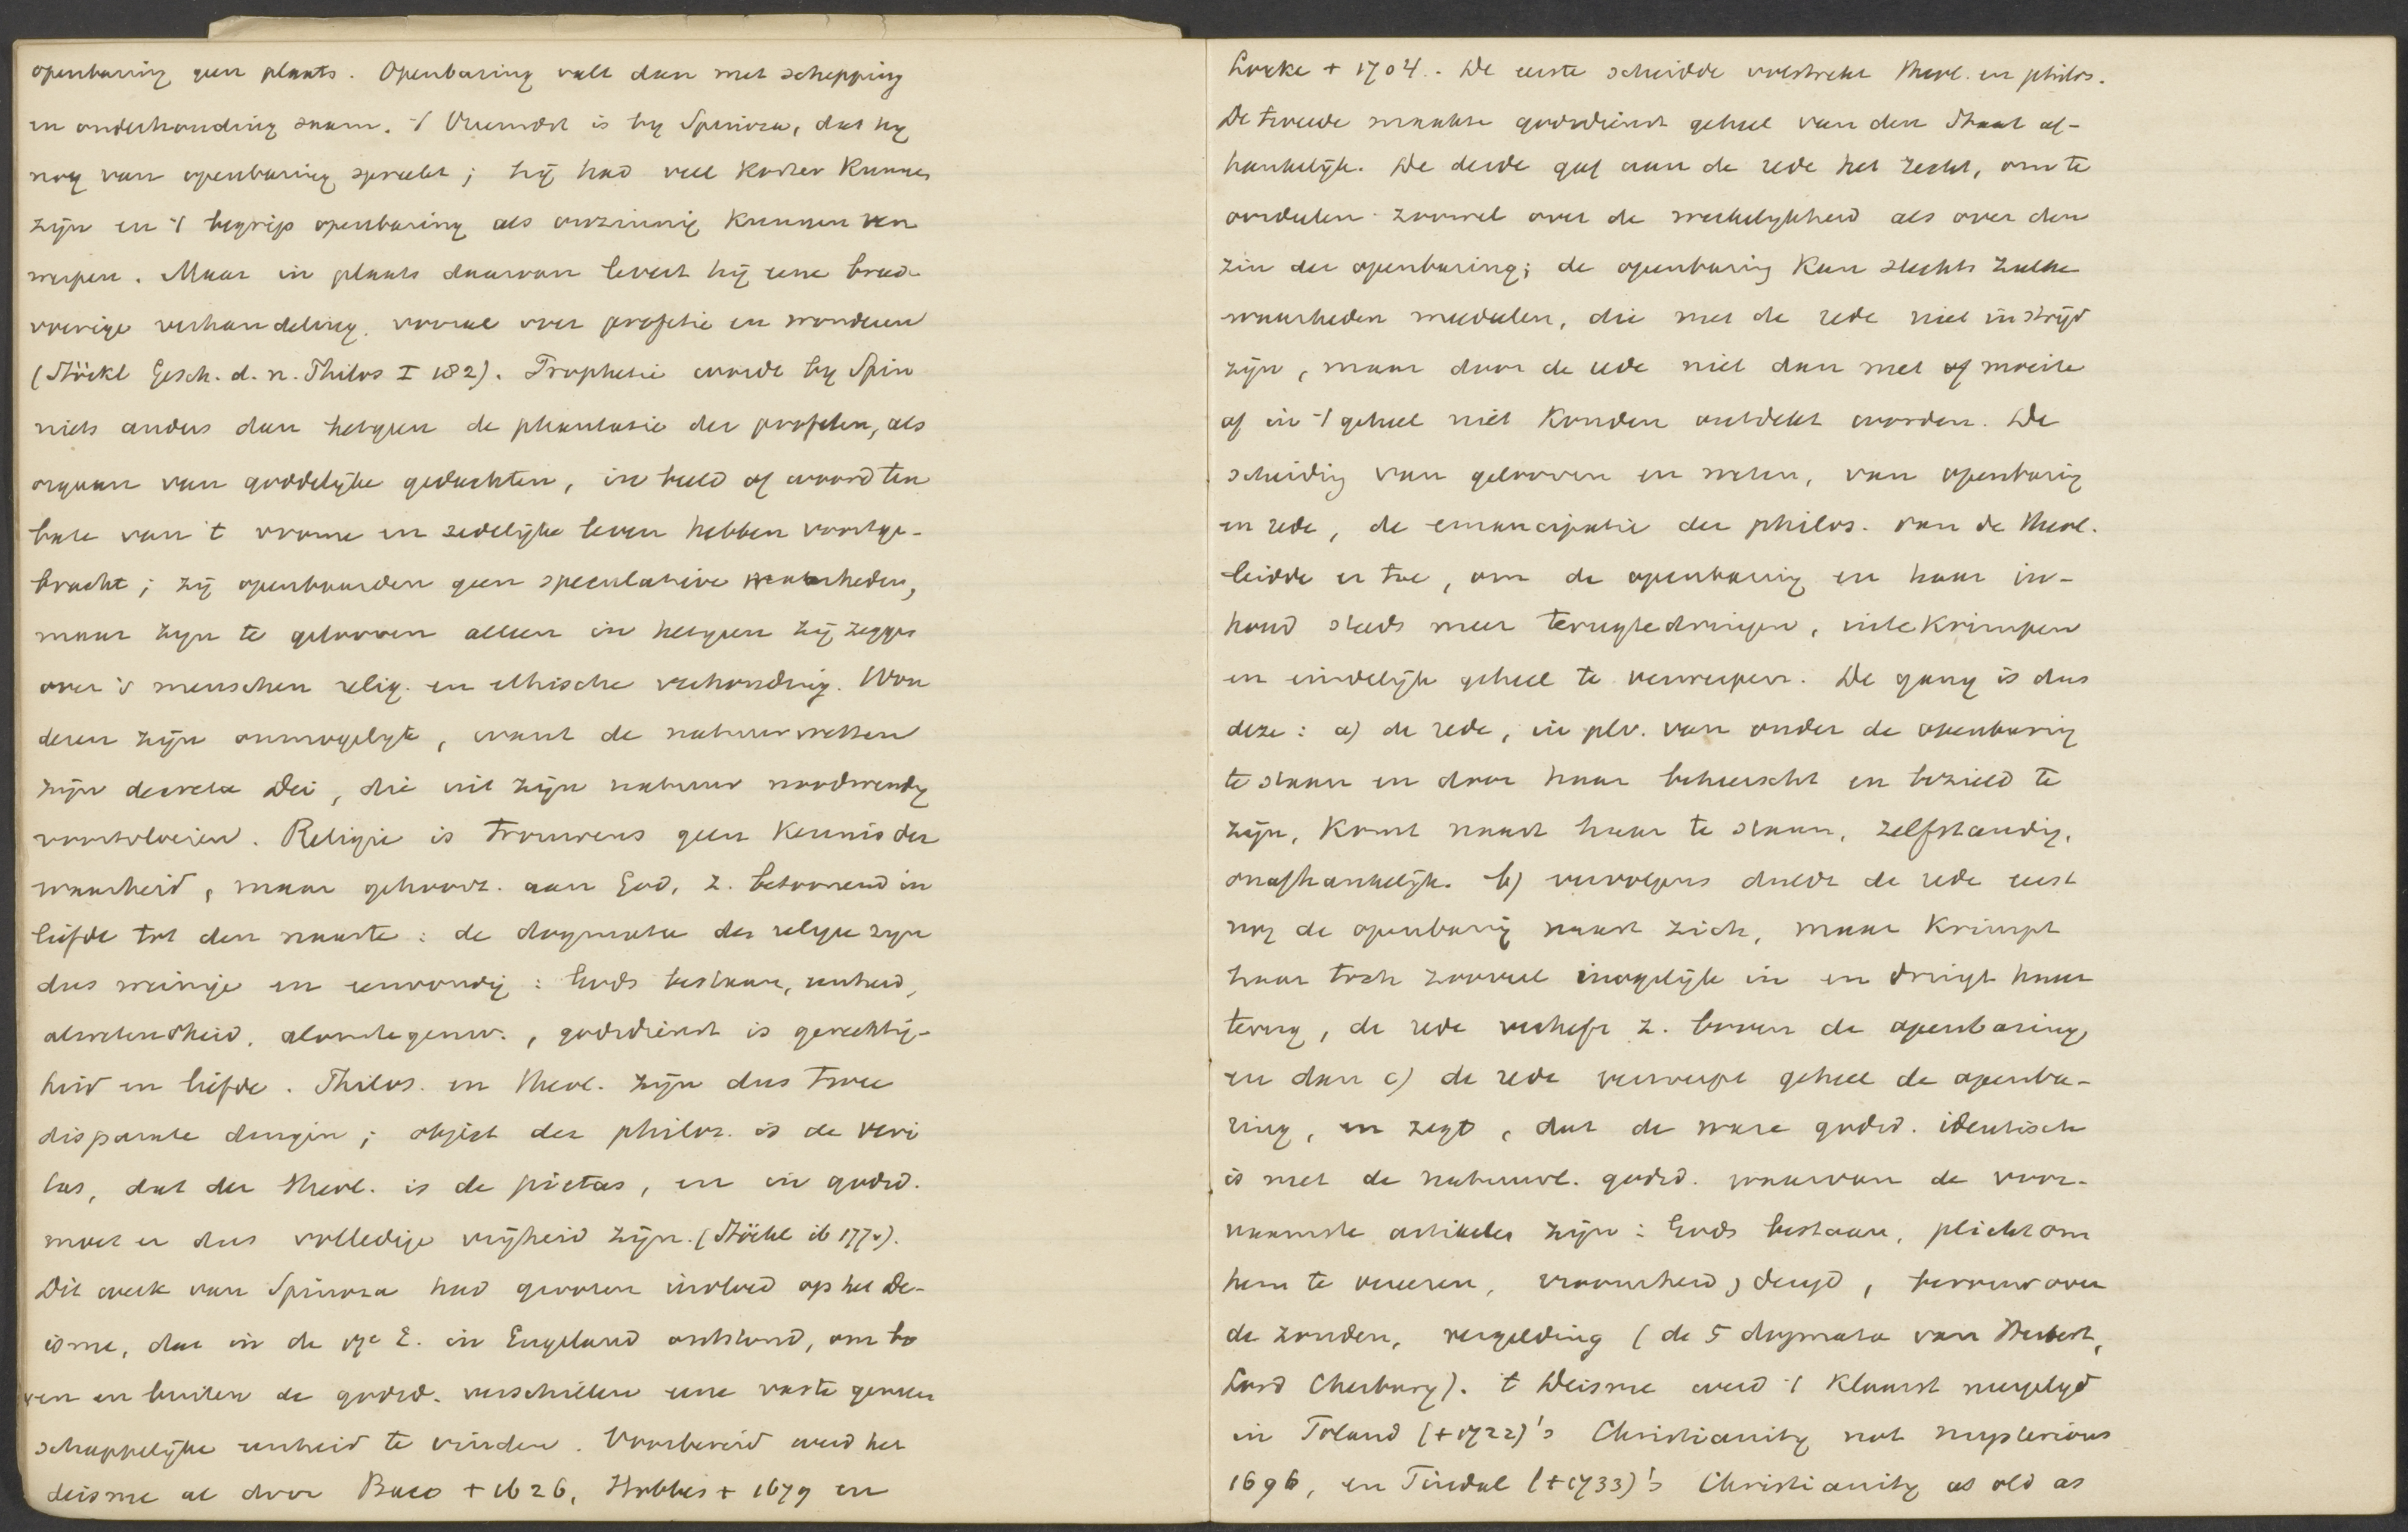 openbaring geen plaats. Openbaring valt dan met schepping
en onderhouding saam. 't Vreemdst is by Spinoza, dat hy
nog van openbaring spreekt; hij had veel korter kunnen
zijn en 't begrip openbaring als onzinnig kunnen ver
werpen. Maar in plaats daarvan levert hij eene breed-
voerige verhandeling, vooral over profetie en wonderen
(Stöckl Gesch. d. n. Philos I 182). Prophetie wordt by Spin
niets anders dan hetgeen de phantasie der profeten, als
orgaan van goddelijke gedachten, in beeld of woord ten
bate van 't vrome en zedelijke leven hebben voortge-
bracht; zij openbaarden geen speculatieve waarheden,
maar zijn te gelooven alleen in hetgeen zij zeggen
over 's menschen relig. en ethische verhouding. Won
deren zijn onmogelijk, want de natuurwetten
zijn decreta Dei, die uit zijn natuur noodwendig
voortvloeien. Religie is trouwens geen kennis der
waarheid, maar gehoorz. aan God, z. betoonend in
liefde tot den naaste: de dogmata der religie zijn
dus weinige en eenvoudig: Gods bestaan, eenheid,
alwetendheid, alomtegenw., godsdienst is gerechtig-
heid en liefde. Philos. en theol. zijn dus twee
disparate dingen; object der philos. is de veri
tas, dat der theol. is de pietas, en in godsd.
moet er dus volledige vrijheid zijn. (Stöckl ib 177v).
Dit werk van Spinoza had grooten invloed op het De-
isme, dat in de 17e E. in Engeland ontstond, om bo
ven en buiten de godsd. verschillen eene vaste gemeen
schappelijke eenheid te vinden. Voorbereid werd het
deisme al door Baco + 1626, Hobbes + 1679 en
Locke + 1704. De eerste scheidde volstrekt theol. en philos.
De tweede maakte godsdienst geheel van den Staat af-
hankelijk. De derde gaf aan de rede het recht, om te
oordeelen zoowel over de werkelykheid als over den
zin der openbaring; de openbaring kan slechts zulke
waarheden meedeelen, die met de rede niet in strijd
zijn, maar door de rede niet dan met of moeite
of in 't geheel niet konden ontdekt worden. De
scheiding van gelooven en weten, van openbaring
en rede, de emancipatie der philos. van de theol.
leidde er toe, om de openbaring en haar in-
houd steeds meer terugtedringen, intekrimpen
en eindelijk geheel te verwerpen. De gang is dus
deze: a) de rede, in plv. van onder de openbaring
te staan en door haar beheerscht en bezield te
zijn, komt naast haar te staan, zelfstandig,
onafhankelijk. b) vervolgens duldt de rede eerst
nog de openbaring naast zich, maar krimpt
haar toch zooveel mogelijk in en dringt haar
terug, de rede verheft z. boven de openbaring
en dan c) de rede verwerpt geheel de openba-
ring, en zegt, dat de ware godsd. identisch
is met de natuurl. godsd. waarvan de voor-
naamste artikelen zijn: Gods bestaan, plicht om
hem te vereeren, vroomheid, deugd, berouw over
de zonden, vergelding (de 5 dogmata van Herbert,
Lord Cherbury). 't Deisme werd 't klaarst neergelegd
in Toland (+1722)'s Christianity not mysterious
1696, en Tindal (+1733)'s Christianity as old as